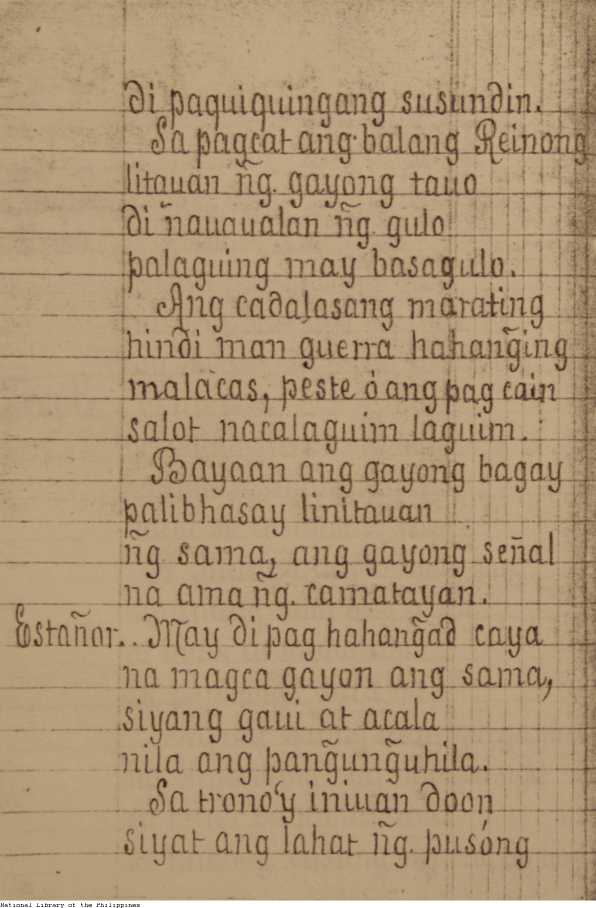 di paquiquingang susundin.
Sa pagcat ang balang Reinong
litauan ñg. gayong tauo
di ñauaualan ñg. gulo
palaguing may basagulo.
Ang cadalasang marating
hindi man guerra hahang̃ing
malacas, peste ó ang pag cain
salot nacalaguim laguim.
Bayaan ang gayong bagay
palibhasay linitauan
ñg sama, ang gayong señal
na ama ñg. camatayan.
Estañor.. May di pag hahang̃ad caya
na magca gayon ang sama,
siyang gaui at acala
nila ang pang̃ung̃uhila.
Sa trono'y iniuan doon
siyat ang lahat ñg. pusóng
National Library of the Philippines